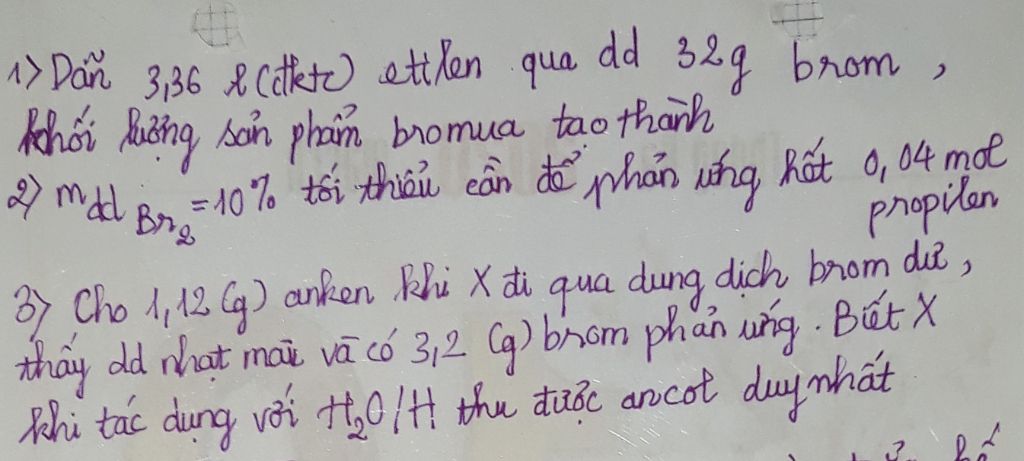 1) Dẫn 3,36 l (đktc) etilen qua dd 32g brom,
khối lượng sản phẩm bromua tạo thành
2) m dd Br2 = 10% tối thiểu cần để phản ứng hết 0,04 mol
propilen
3) Cho 1,12 (g) anken khi X đi qua dung dịch brom dư,
thấy dd nhạt màu và có 3,2 (g) brom phản ứng. Biết X
khi tác dụng với H2O/H thu được ancol duy nhất